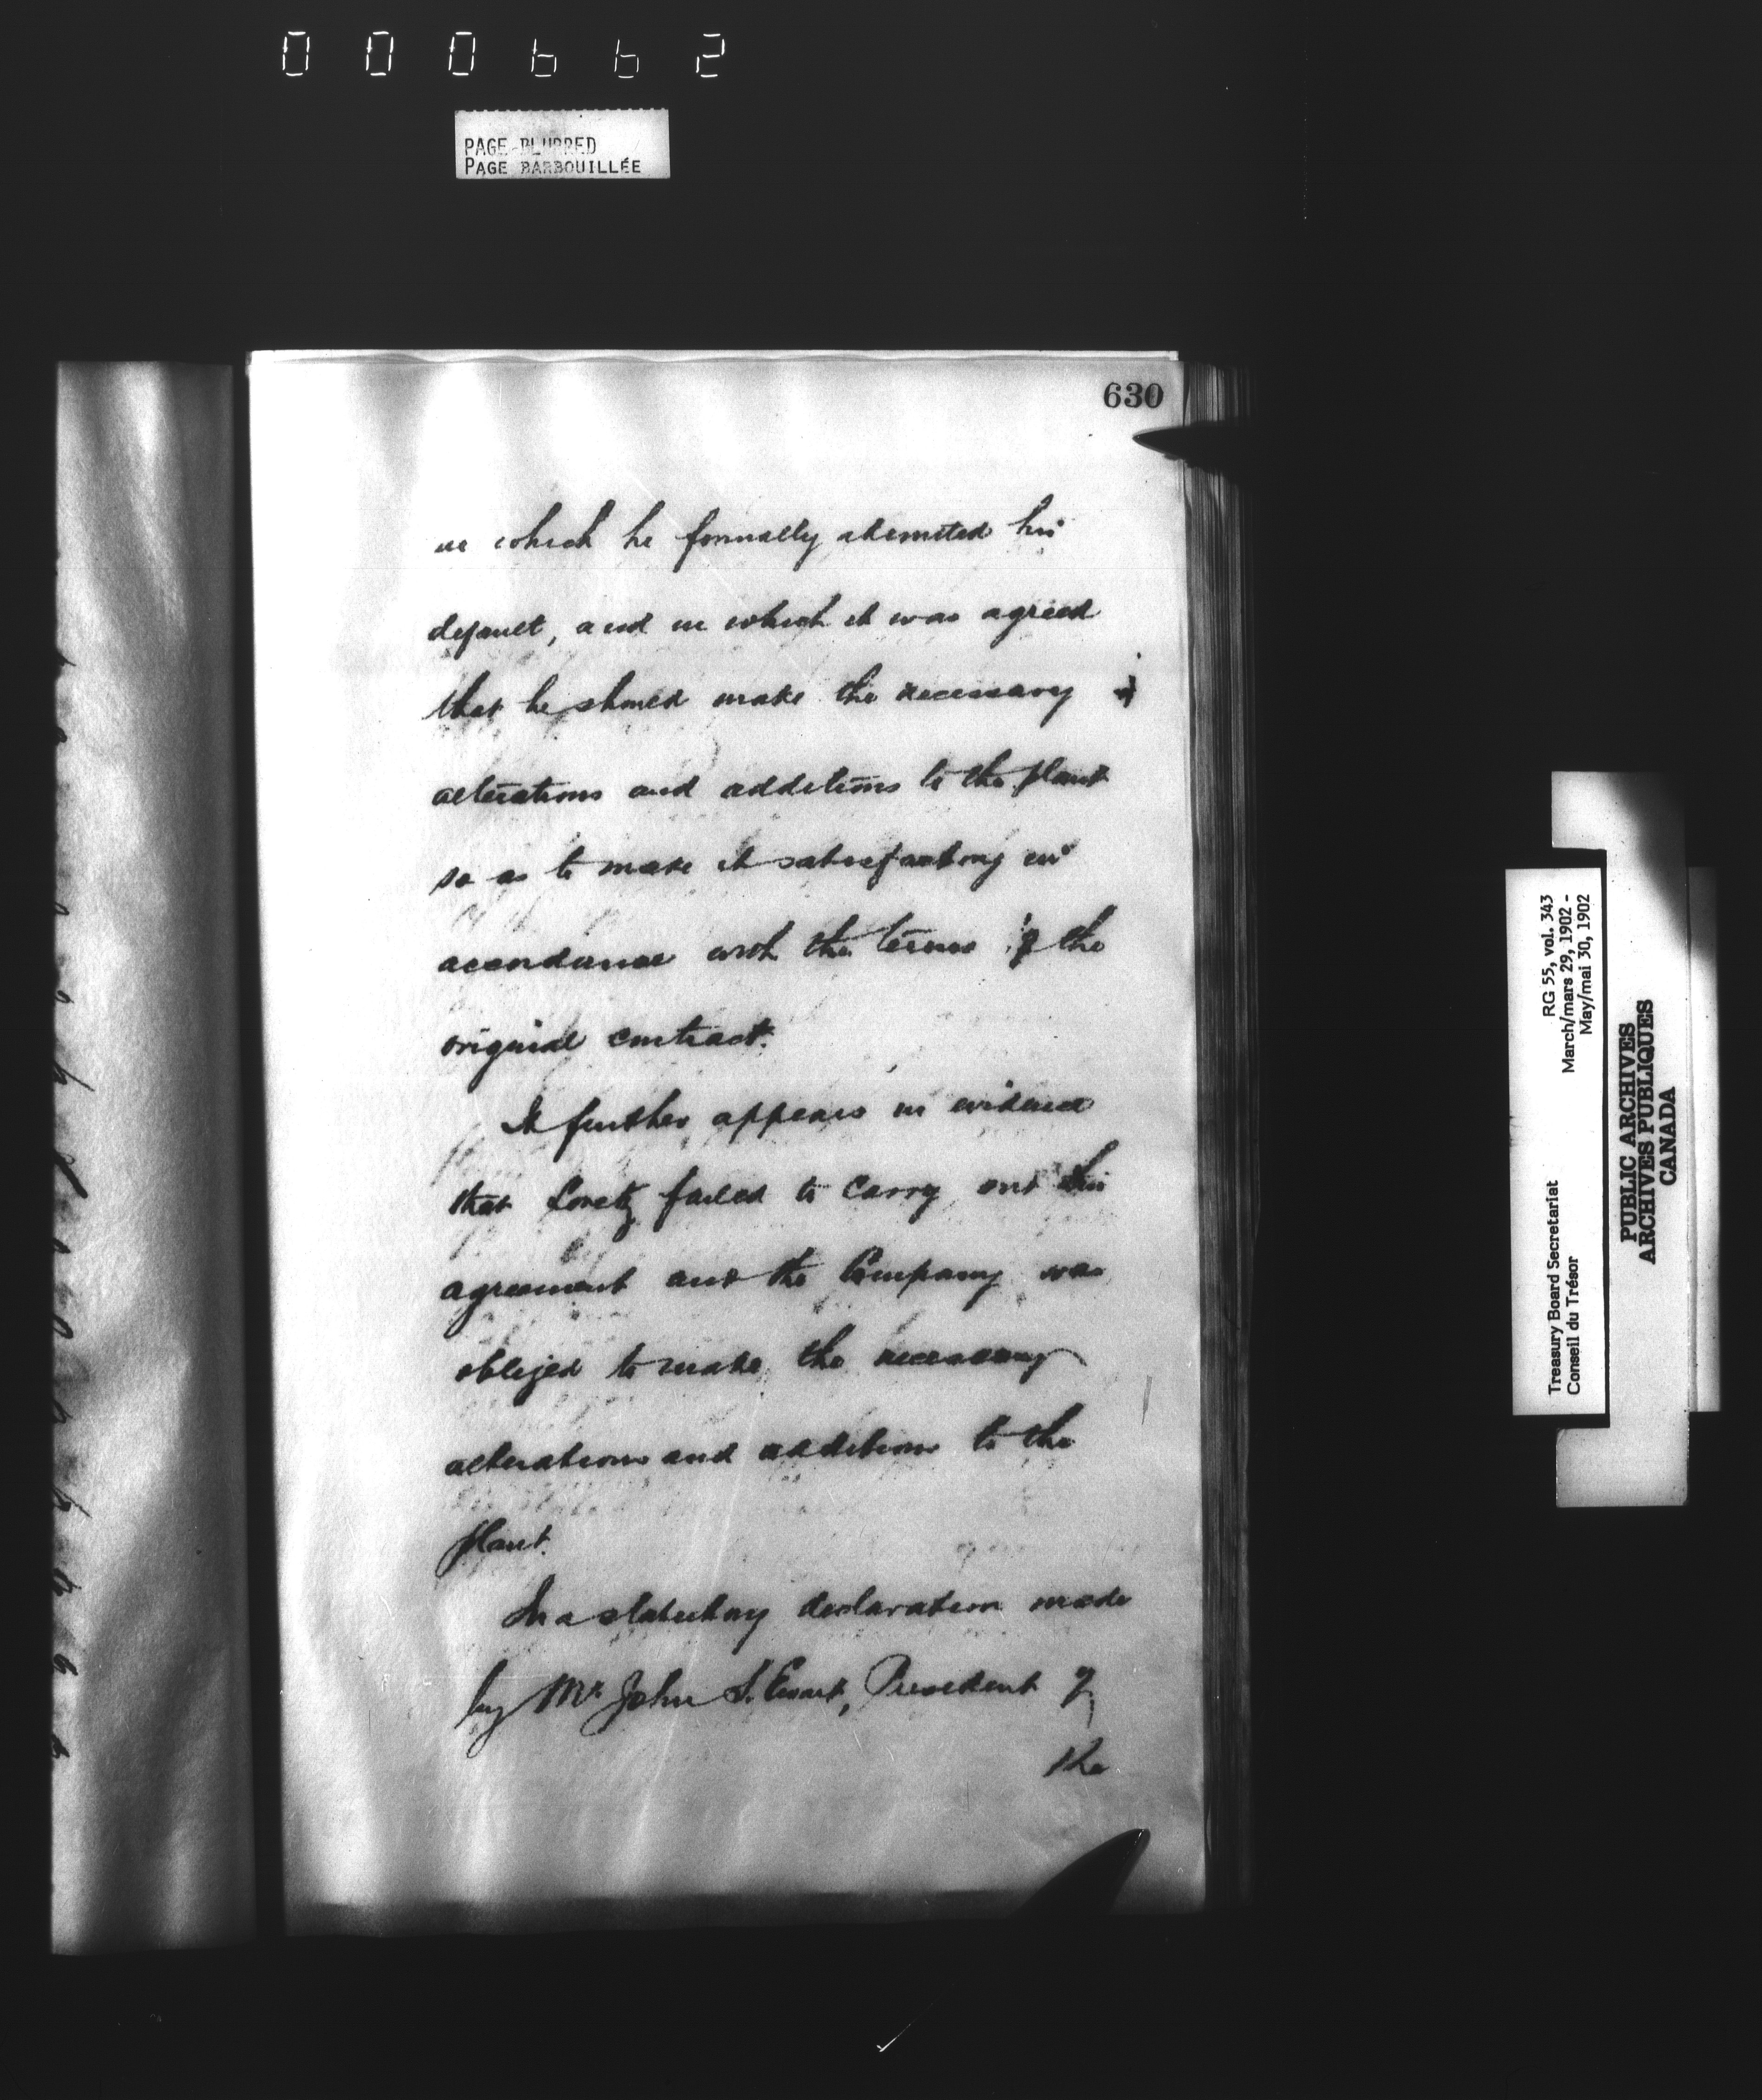 000662
PAGE BLURRED
PAGE BARBOUILLÉE
630
in which he formally admitted his
default, and in which it was agreed
that he should make the necessary
alterations and additions to the plant
so as to make it satisfactory in
accordance with the terms of the
original contract.
It further appears in evidence
that failed to carry out this
agreement and the Company was
obliged to make the necessary
alterations and additions to the
plant.
In a statutory declaration made
by Mr John S. Ewart, President of
the
Treasury Board Secretariat
Conseil du Trésor
RG 55, vol. 343
March/mars 29, 1902 -
May/mai 30, 1902
PUBLIC ARCHIVES
ARCHIVES PUBLIQUES
CANADA